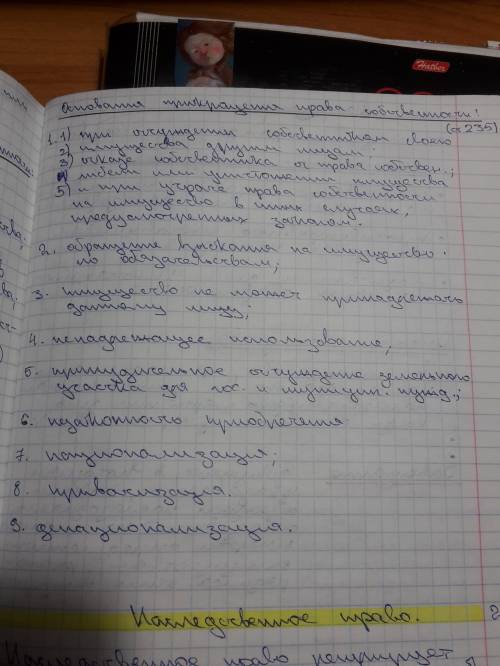 Hatber
Основания прекращения права собственности:
(ст 235)
1. 1) при отчуждении собственником своего
2) имущества другим лицам.
3) отказе собственника от права собствен.;
4) гибели или уничтожении имущества
5) и при утрате права собственности
на имущество в иных случаях,
предусмотренных законом.
2. обращение взыскания на имущество
по обязательствам;
3. имущество не может принадлежать
данному лицу;
4. ненадлежащее использование;
5. принудительное отчуждение земельного
участка для гос. и муницип. нужд.;
6. незаконность приобретения
7. национализация;
8. приватизация.
9. денационализация.
Наследственное право.
Наследственное право регулирует